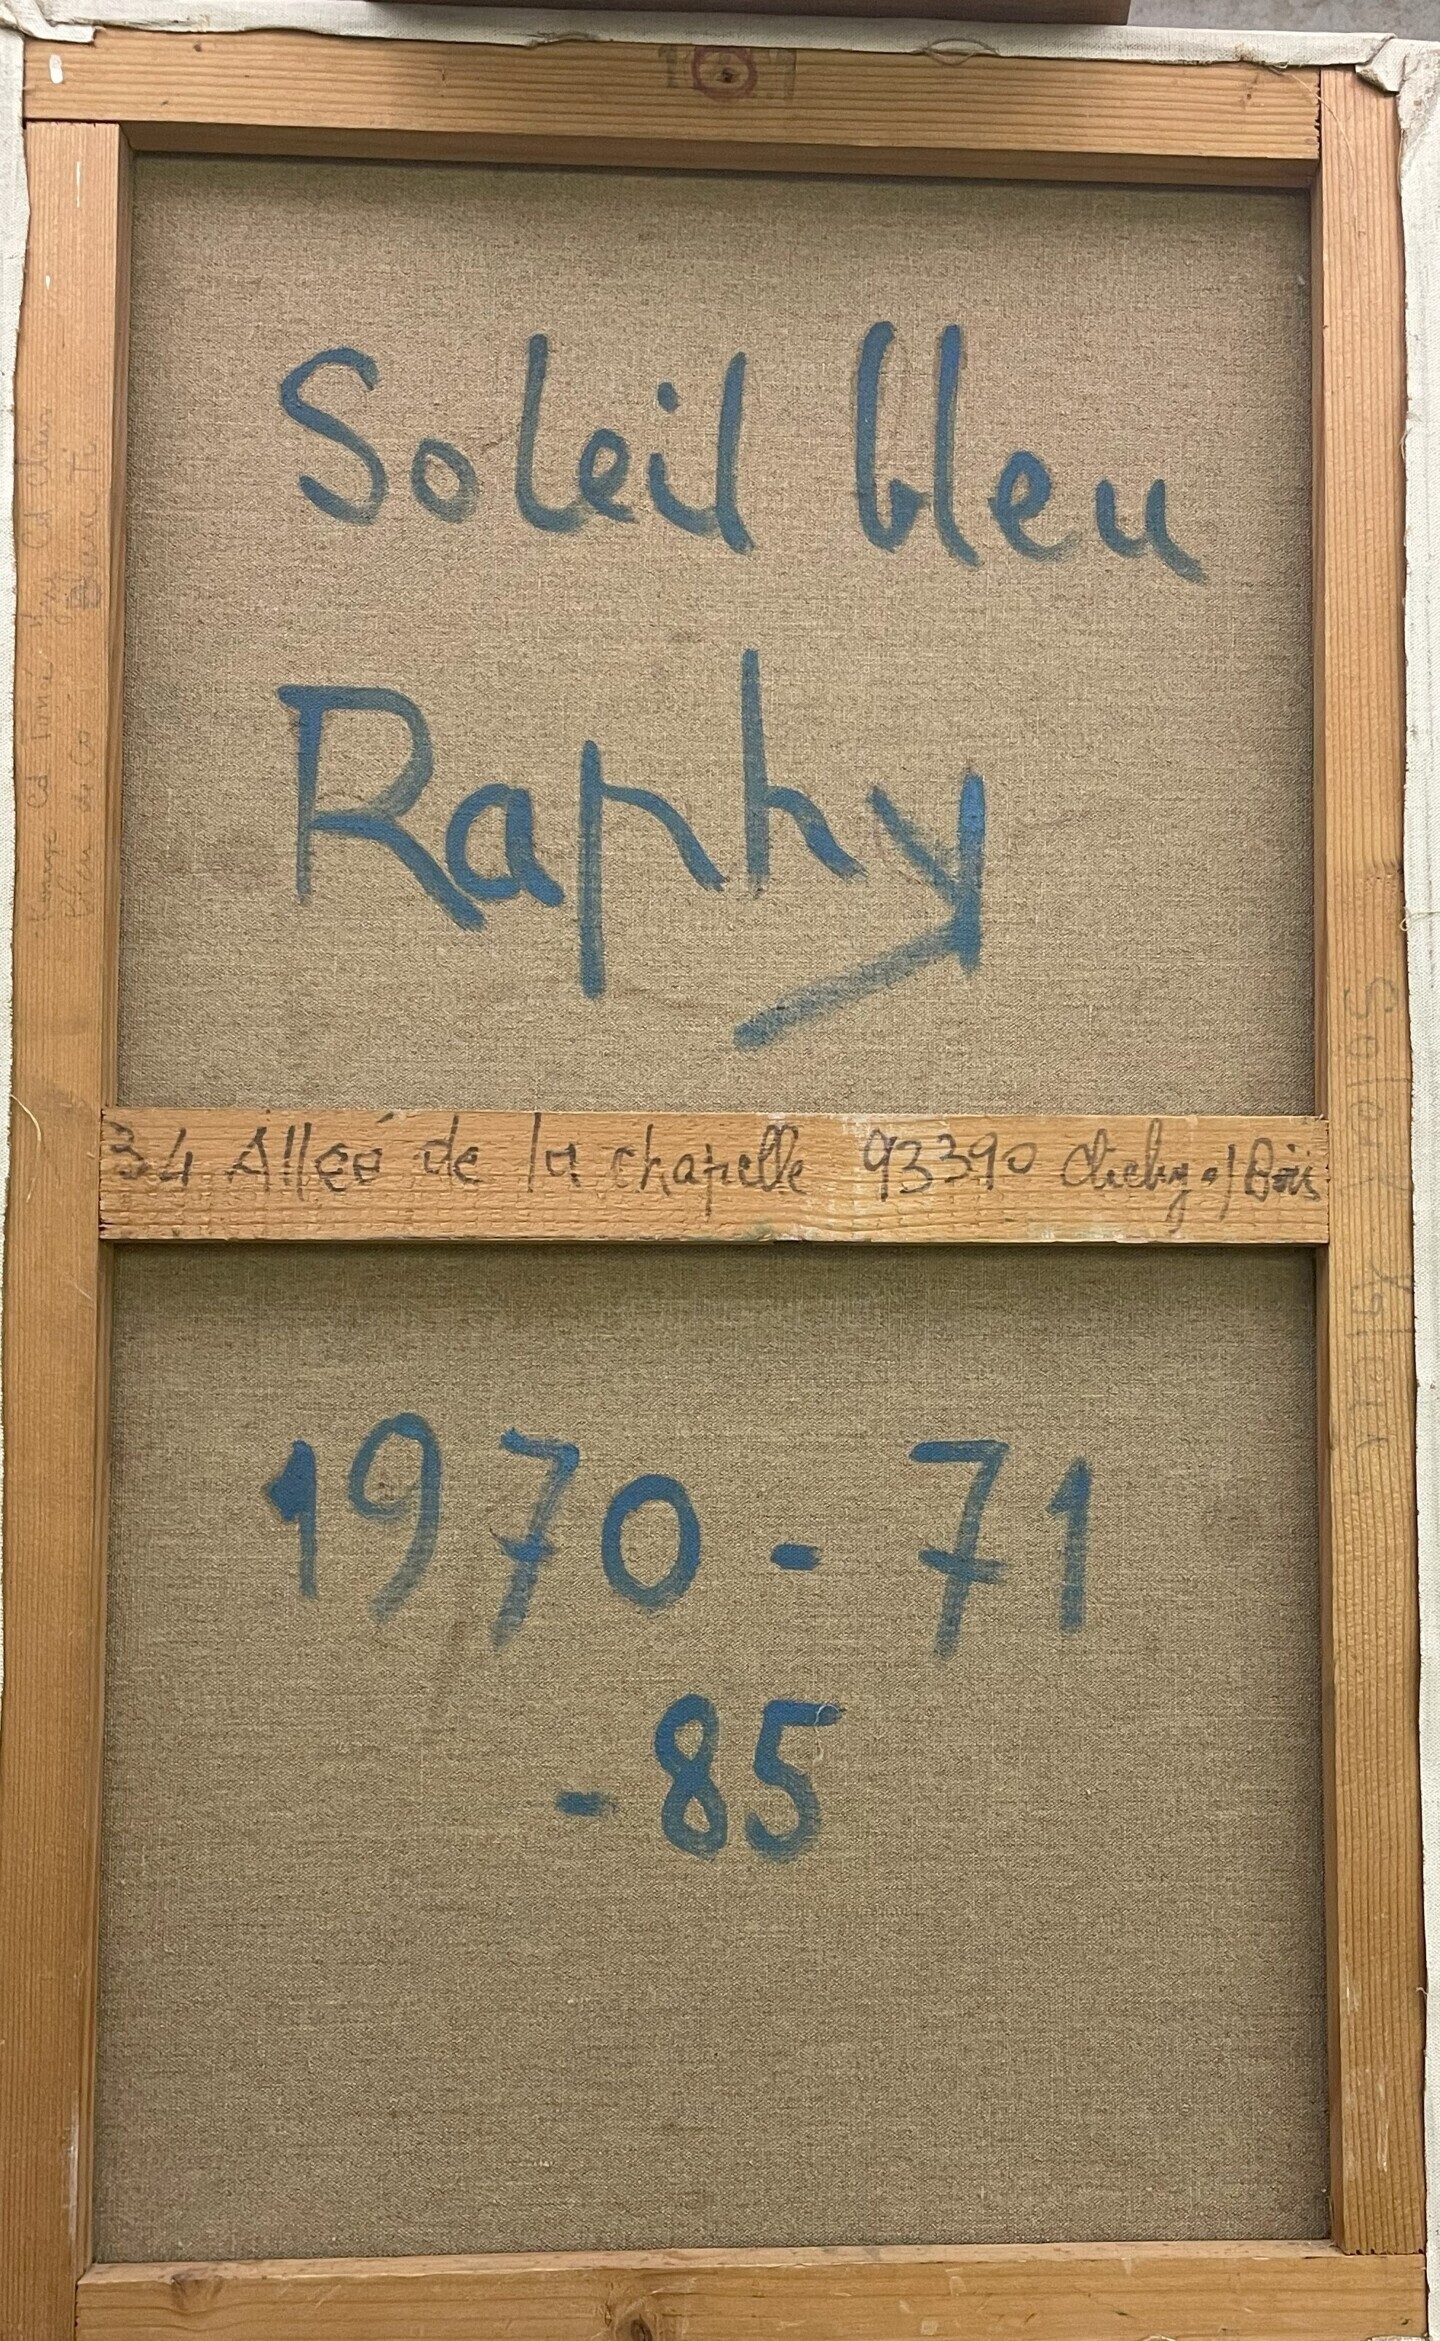 Soleil bleu
Raphy
34 Allée de la chapelle 93390 Clichy s/Bois
1970 - 71
- 85